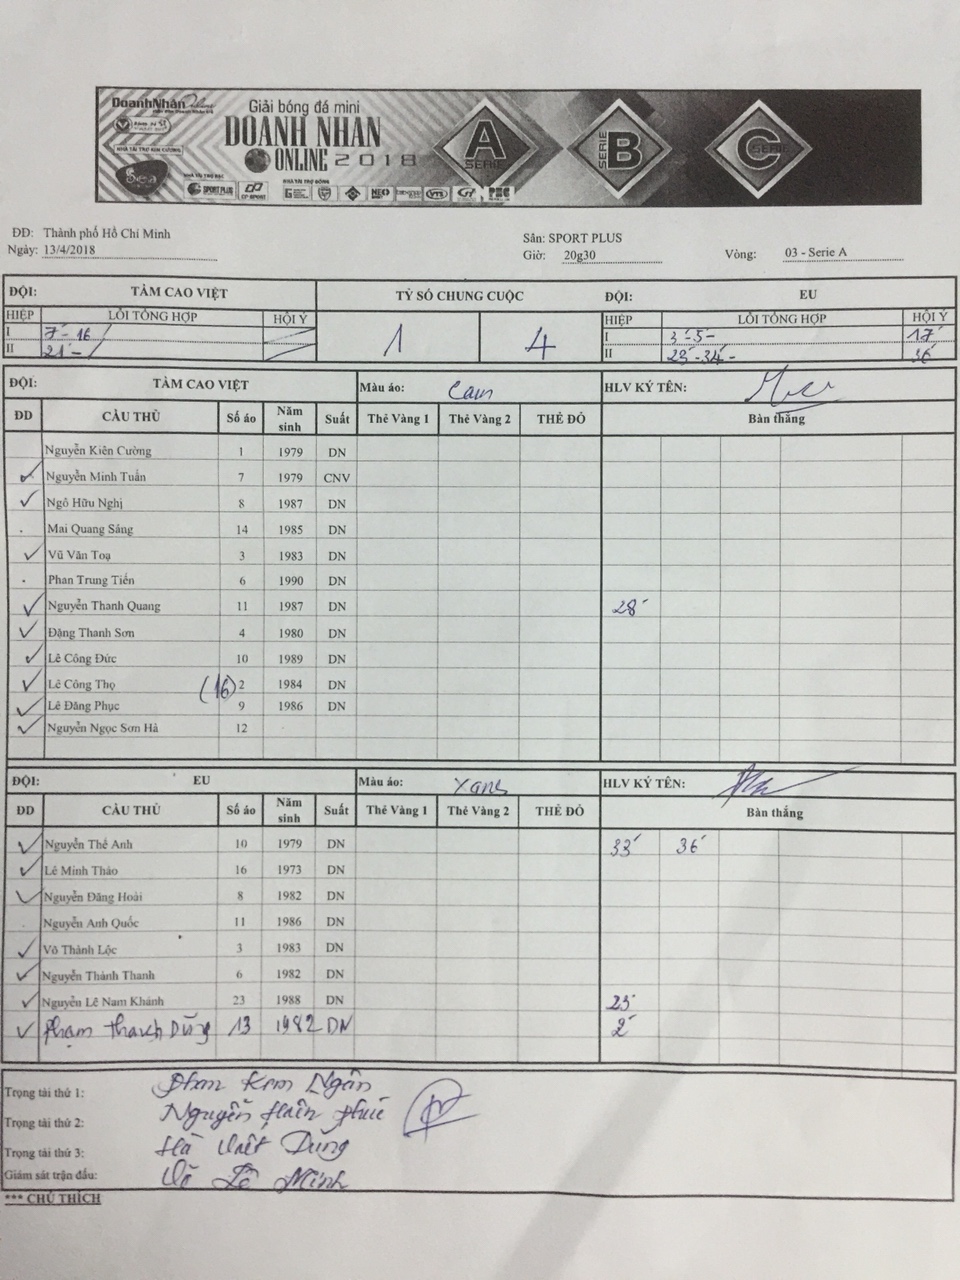 DoanhNhân Online
Giải bóng đá mini
DOANH NHÂN
ONLINE 2018
NHÀ TÀI TRỢ KIM CƯƠNG
Sea
NHÀ TÀI TRỢ BẠC
NHÀ TÀI TRỢ ĐỒNG
SPORT PLUS
CP SPORT
NEO
VTS
A SERIE
SERIE B
C SERIE
ĐĐ: Thành phố Hồ Chí Minh
Sân: SPORT PLUS
Ngày: 13/4/2018 Giờ: 20g30 Vòng: 03 - Serie A
ĐỘI: TẦM CAO VIỆT TỶ SỐ CHUNG CUỘC ĐỘI: EU
HIỆP LỖI TỔNG HỢP HỘI Ý HIỆP LỖI TỔNG HỢP HỘI Ý
I 7'-16' 1 4 I 3'-5'- 17'
II 21'- II 23'-34'- 36'
ĐỘI: TẦM CAO VIỆT Màu áo: Cam HLV KÝ TÊN:
ĐD CẦU THỦ Số áo Năm sinh Suất Thẻ Vàng 1 Thẻ Vàng 2 THẺ ĐỎ Bàn thắng
Nguyễn Kiên Cường 1 1979 DN
Nguyễn Minh Tuấn 7 1979 CNV
Ngô Hữu Nghị 8 1987 DN
Mai Quang Sáng 14 1985 DN
Vũ Văn Toạ 3 1983 DN
Phan Trung Tiến 6 1990 DN
Nguyễn Thanh Quang 11 1987 DN 28'
Đặng Thanh Sơn 4 1980 DN
Lê Công Đức 10 1989 DN
Lê Công Thọ (16) 2 1984 DN
Lê Đăng Phục 9 1986 DN
Nguyễn Ngọc Sơn Hà 12
ĐỘI: EU Màu áo: Xanh HLV KÝ TÊN:
ĐD CẦU THỦ Số áo Năm sinh Suất Thẻ Vàng 1 Thẻ Vàng 2 THẺ ĐỎ Bàn thắng
Nguyễn Thế Anh 10 1979 DN 33' 36'
Lê Minh Thảo 16 1973 DN
Nguyễn Đăng Hoài 8 1982 DN
Nguyễn Anh Quốc 11 1986 DN
Võ Thành Lộc 3 1983 DN
Nguyễn Thành Thanh 6 1982 DN
Nguyễn Lê Nam Khánh 23 1988 DN 25'
Phạm Thanh Dũng 13 1982 DN 2'
Trọng tài thứ 1: Phan Kim Ngân
Trọng tài thứ 2: Nguyễn Phúc
Trọng tài thứ 3: Hà Việt Dũng
Giám sát trận đấu: Võ Lê Minh
*** CHÚ THÍCH